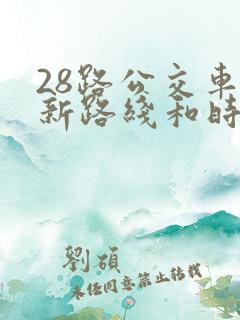 28路公交車
新路綫和時
劉碩
未經同意禁止轉載